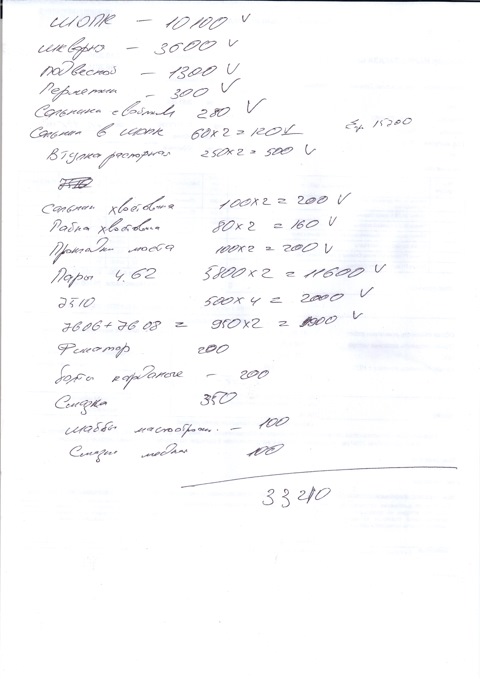 ШОПК – 10100 V
шкворня – 3600 V
подвесной – 1300 V
Герметик – 300 V
Сальники с войлоком 280 V
Сальник в шопк 60x2 = 120 V 15200
Втулка распорная 250x2 = 500 V
Сальник хвостовика 100x2 = 200 V
Гайка хвостовика 80x2 = 160 V
Прокладки моста 100x2 = 200 V
Пары 4.62 5800x2 = 11600 V
7510 500x4 = 2000 V
7606 + 7608 = 950x2 = 1900 V
Фиксатор 200
болты карданные – 200
Смазка 350
шайбы маслоотраж. – 100
Смазка медная 100
33210